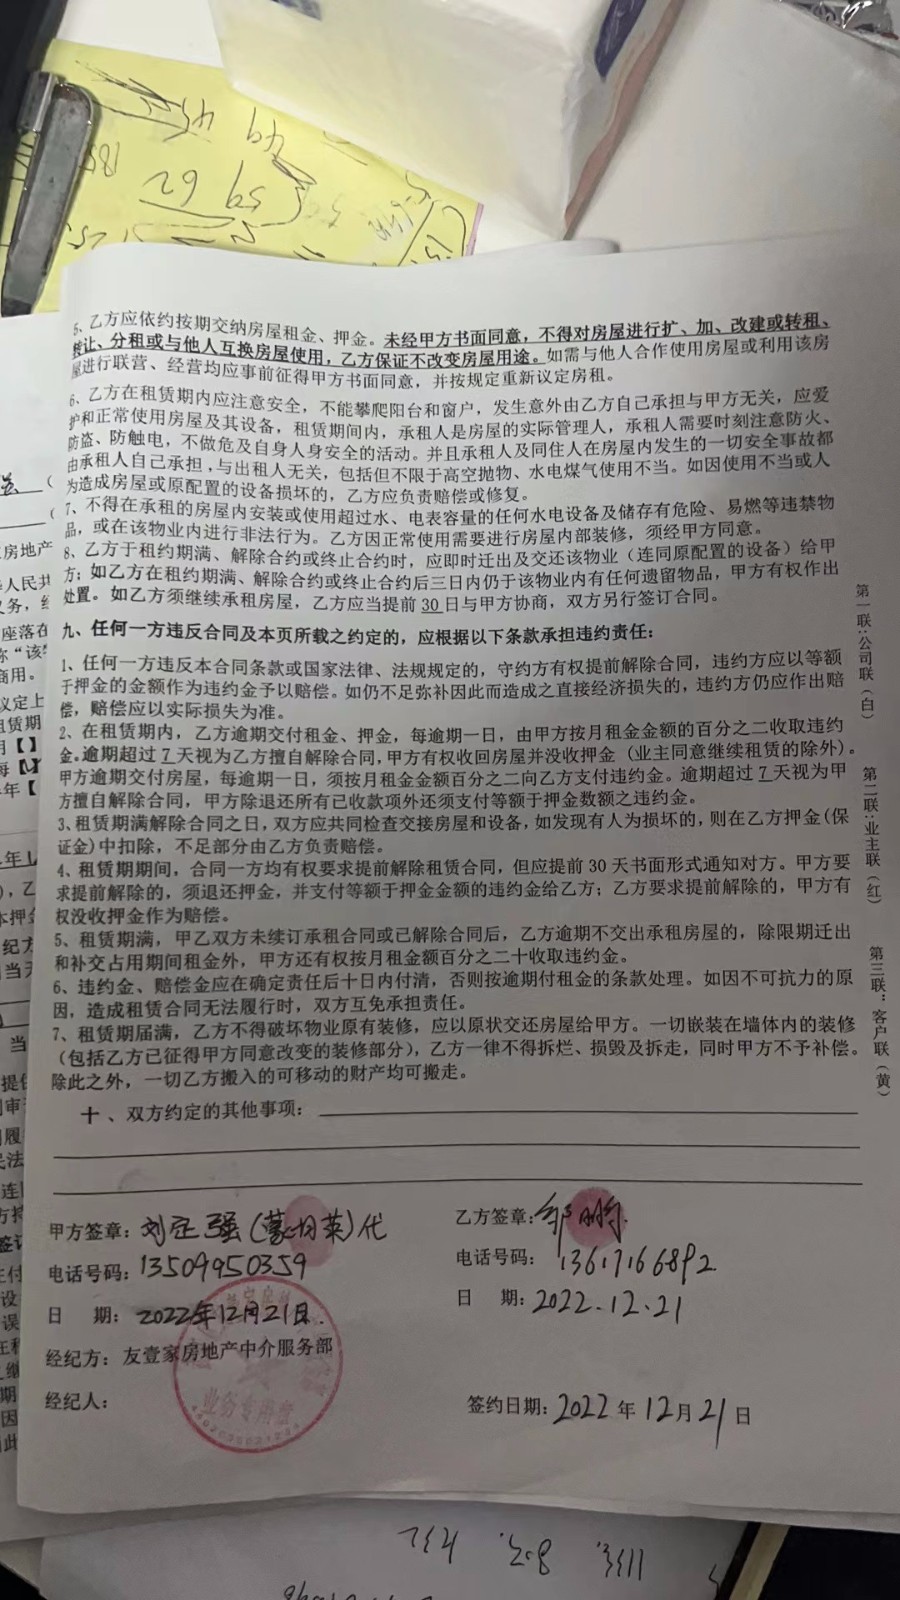 5、乙方应依约按期交纳房屋租金、押金。未经甲方书面同意，不得对房屋进行扩、加、改建或转租、
转让、分租或与他人互换房屋使用，乙方保证不改变房屋用途。如需与他人合作使用房屋或利用该房
屋进行联营、经营均应事前征得甲方书面同意，并按规定重新议定房租。
6、乙方在租赁期内应注意安全，不能攀爬阳台和窗户，发生意外由乙方自己承担与甲方无关，应爱
护和正常使用房屋及其设备，租赁期间内，承租人是房屋的实际管理人，承租人需要时刻注意防火、
防盗、防触电，不做危及自身人身安全的活动。并且承租人及同住人在房屋内发生的一切安全事故都
由承租人自己承担，与出租人无关，包括但不限于高空抛物、水电煤气使用不当。如因使用不当或人
为造成房屋或原配置的设备损坏的，乙方应负责赔偿或修复。
7、不得在承租的房屋内安装或使用超过水、电表容量的任何水电设备及储存有危险、易燃等违禁物
品，或在该物业内进行非法行为。乙方因正常使用需要进行房屋内部装修，须经甲方同意。
8、乙方于租约期满、解除合约或终止合约时，应即时迁出及交还该物业（连同原配置的设备）给甲
方；如乙方在租约期满、解除合约或终止合约后三日内仍于该物业内有任何遗留物品，甲方有权作出
处置。如乙方须继续承租房屋，乙方应当提前30日与甲方协商，双方另行签订合同。
九、任何一方违反合同及本页所载之约定的，应根据以下条款承担违约责任：
1、任何一方违反本合同条款或国家法律、法规规定的，守约方有权提前解除合同，违约方应以等额
于押金的金额作为违约金予以赔偿。如仍不足弥补因此而造成之直接经济损失的，违约方仍应作出赔
偿，赔偿应以实际损失为准。
2、在租赁期内，乙方逾期交付租金、押金，每逾期一日，由甲方按月租金金额的百分之二收取违约
金。逾期超过7天视为乙方擅自解除合同，甲方有权收回房屋并没收押金（业主同意继续租赁的除外）。
甲方逾期交付房屋，每逾期一日，须按月租金金额百分之二向乙方支付违约金。逾期超过7天视为甲
方擅自解除合同，甲方除退还所有已收款项外还须支付等额于押金数额之违约金。
3、租赁期满解除合同之日，双方应共同检查交接房屋和设备，如发现有人为损坏的，则在乙方押金(保
证金)中扣除，不足部分由乙方负责赔偿。
4、租赁期期间，合同一方均有权要求提前解除租赁合同，但应提前30天书面形式通知对方。甲方要
求提前解除的，须退还押金，并支付等额于押金金额的违约金给乙方；乙方要求提前解除的，甲方有
权没收押金作为赔偿。
5、租赁期满，甲乙双方未续订承租合同或已解除合同后，乙方逾期不交出承租房屋的，除限期迁出
和补交占用期间租金外，甲方还有权按月租金额百分之二十收取违约金。
6、违约金、赔偿金应在确定责任后十日内付清，否则按逾期付租金的条款处理。如因不可抗力的原
因，造成租赁合同无法履行时，双方互免承担责任。
7、租赁期届满，乙方不得破坏物业原有装修，应以原状交还房屋给甲方。一切嵌装在墙体内的装修
(包括乙方已征得甲方同意改变的装修部分)，乙方一律不得拆烂、损毁及拆走，同时甲方不予补偿。
除此之外，一切乙方搬入的可移动的财产均可搬走。
十、双方约定的其他事项：
甲方签章：刘定强(蒙均英)代
电话号码：13509950359
日 期：2022年12月21日.
经纪方：友壹家房地产中介服务部
经纪人：
业务专用章
乙方签章：邹鹏
电话号码：13617166892
日 期：2022.12.21
签约日期：2022年12月21日
第一联：公司联（白）
第二联：业主联（红）
第三联：客户联（黄）
房地产
座落在
59 62